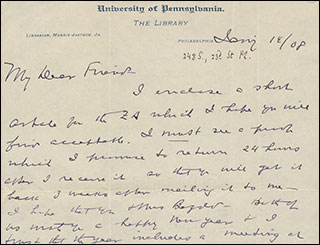 University of Pennsylvania.
THE LIBRARY
LIBRARIAN, MORRIS JASTROW, JR.
PHILADELPHIA Jany 18/08
248 S. 23rd St Ph.
My Dear Friend
I enclose a short
article for the ZA which I hope you will
find acceptable. I must see a proof
which I promise to return 24 hours
after I receive it so that you will get it
back 3 weeks after mailing it to me –
I hope that you & Mrs Bezold – both of
us wish you a happy New year & I
trust that the year includes a meeting at